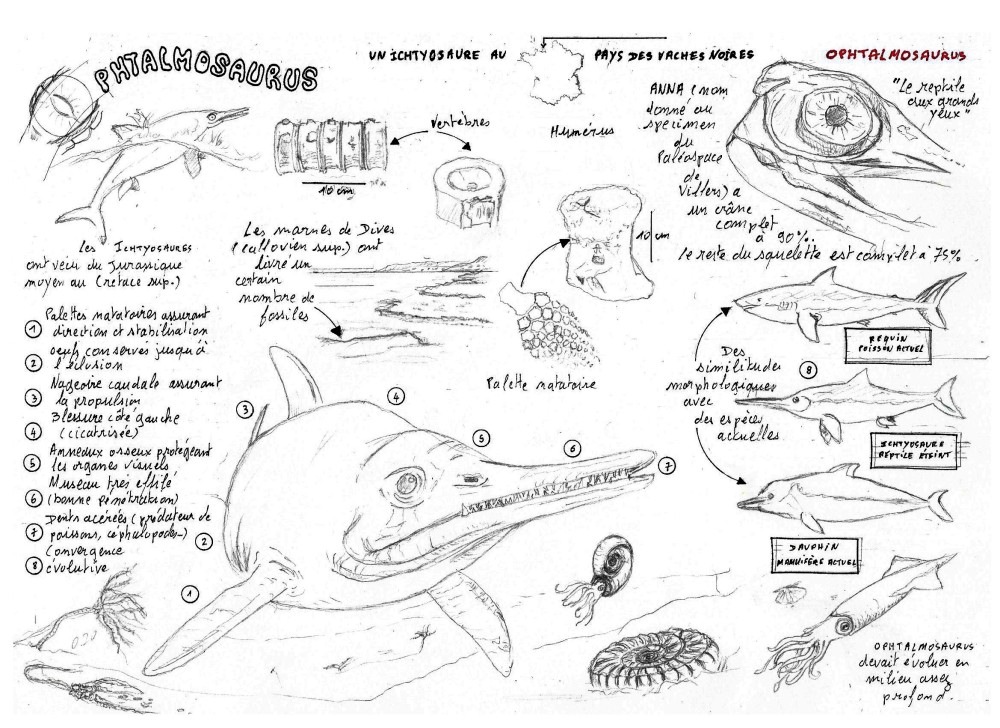 OPHTALMOSAURUS
UN ICHTYOSAURE AU
PAYS DES VACHES NOIRES
OPHTALMOSAURUS
"Le reptile
aux grands
yeux"
ANNA (nom
donné au
specimen
du
Paléospace
de
Villers) a
un crâne
complet
à 90%.
le reste du squelette est complet à 75%
Vertèbres
10 cm
Humérus
10 cm
Palette natatoire
les ICHTYOSAURES
ont vécu du Jurassique
moyen au Crétacé sup.)
Les marnes de Dives
(callovien sup.) ont
livré un
certain
nombre de
fossiles
Palettes natatoires assurant
1 direction et stabilisation
oeufs conservés jusqu'à
2 l'éclosion
Nageoire caudale assurant
3 la propulsion
Blessure côté gauche
4 (cicatrisée)
Anneaux osseux protégeant
5 les organes visuels
Museau très effilé
6 (bonne pénétration)
Dents acérées (prédateur de
7 poissons, céphalopodes...)
Convergence
8 évolutive
1
2
3
4
5
6
7
8
Des
similitudes
morphologiques
avec
des espèces
actuelles
REQUIN
POISSON ACTUEL
ICHTYOSAURE
REPTILE ÉTEINT
DAUPHIN
MAMMIFÈRE ACTUEL
OPHTALMOSAURUS
devait évoluer en
milieu assez
profond.